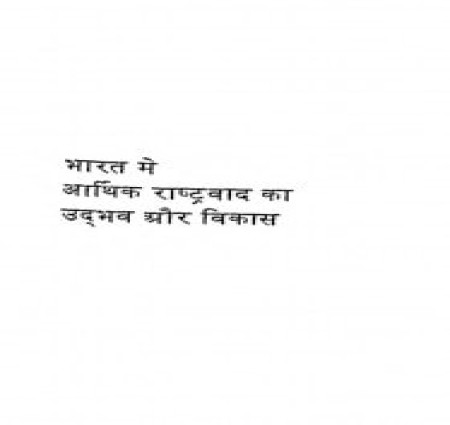 भारत मे
आर्थिक राष्ट्रवाद का
उद्‌भव और विकास